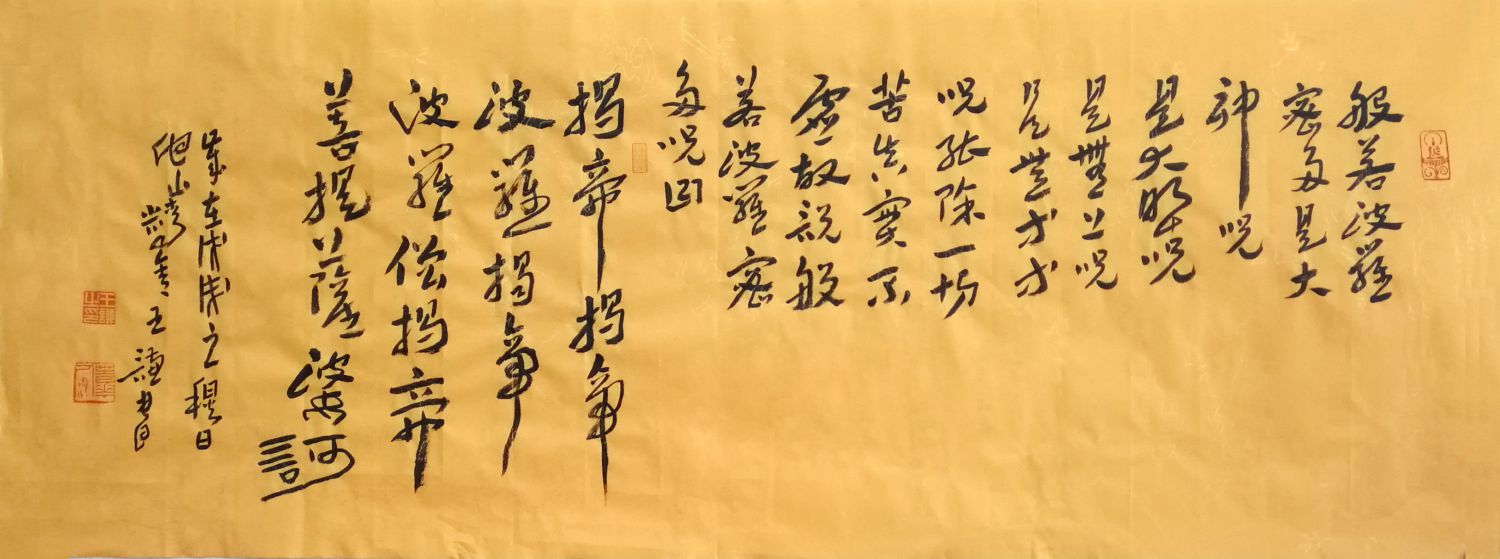 般若波羅
密多是大
神呪
是大明呪
是無上呪
是無等等
呪能除一切
苦真實不
虛故說般
若波羅密
多呪曰
揭帝揭帝
波羅揭帝
波羅僧揭帝
菩提薩婆訶
歲在戊戌之穐日
山 王謙書